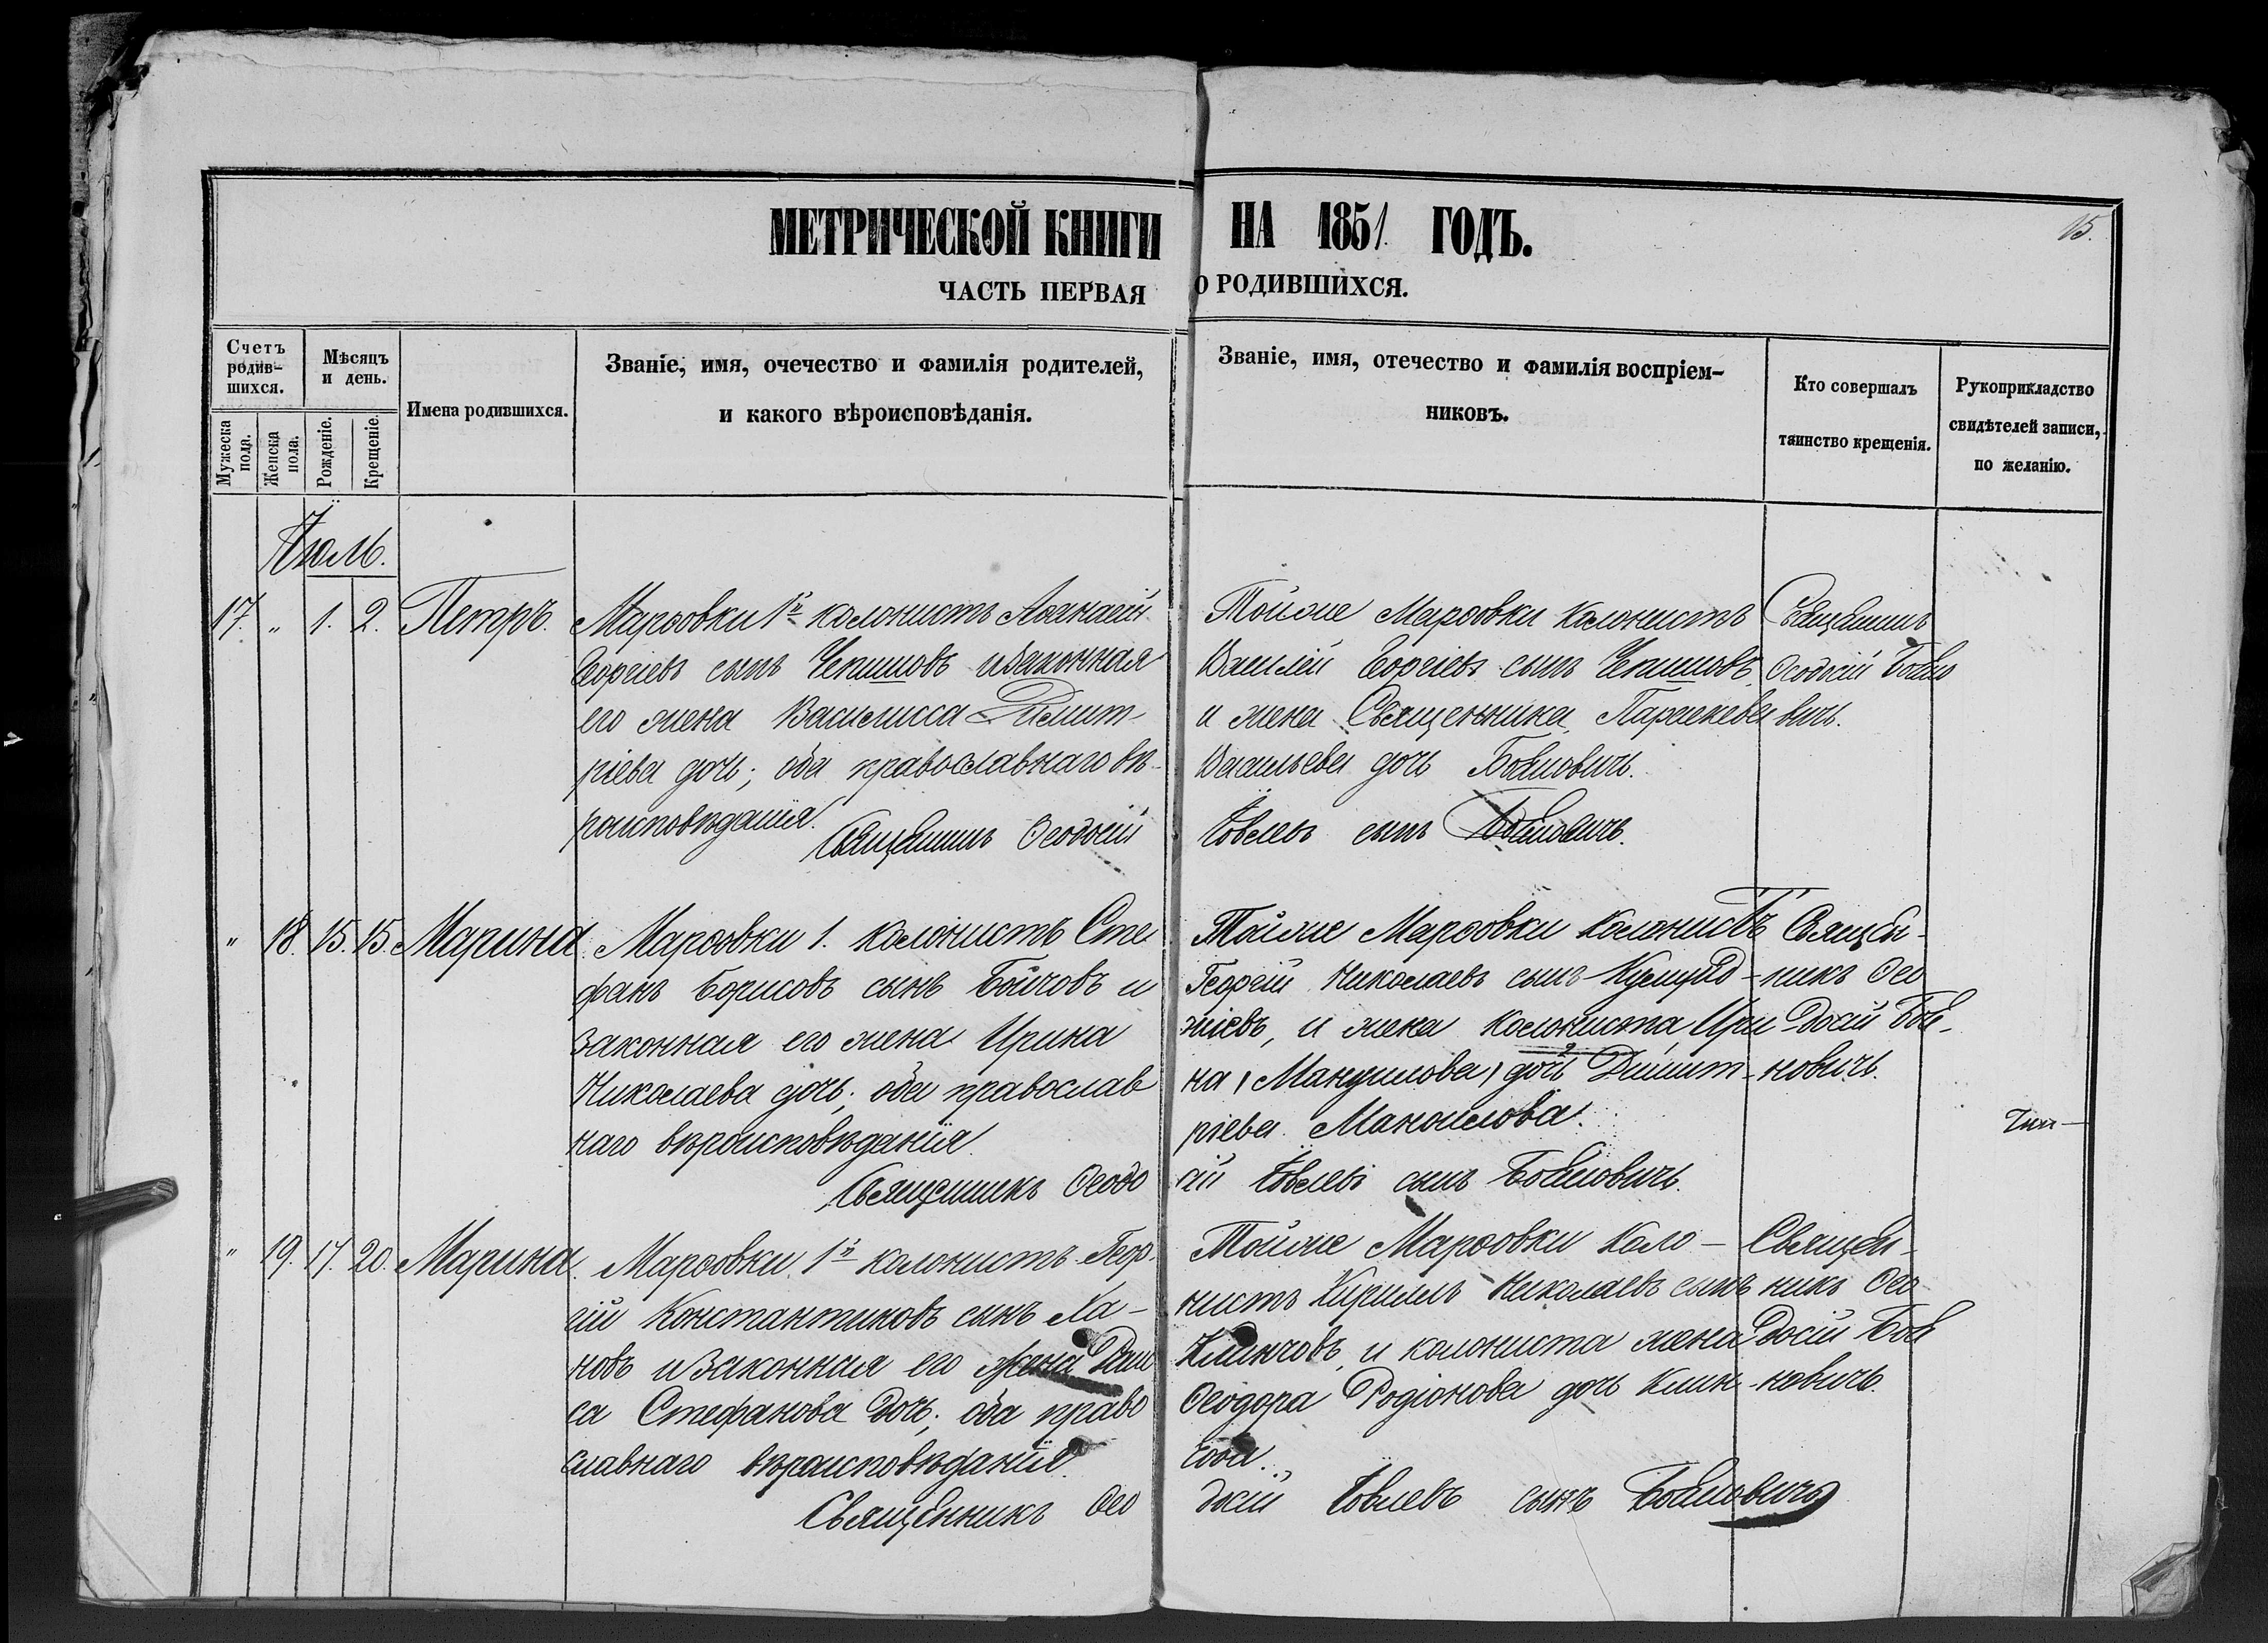 МЕТРИЧЕСКОЙ КНИГИ НА 1851 ГОДЪ.
15.
ЧАСТЬ ПЕРВАЯ О РОДИВШИХСЯ.
Счетъ родив-шихся.
Мужеска пола.
Женска пола.
Мѣсяцъ и день.
Рожденіе.
Крещеніе.
Имена родившихся.
Званіе, имя, очечество и фамилія родителей,
и какого вѣроисповѣданія.
Званіе, имя, отечество и фамилія воспріем-
никовъ.
Кто совершалъ
таинство крещенія.
Рукоприкладство
свидѣтелей записи,
по желанію.
Іюль.
17. " 1. 2. Петръ.
Марѳовки 1й колонистъ Аѳанасій
Георгіевъ сынъ Чепишовъ и законная
его жена Василисса Димит-
ріева дочь; оба православнаго вѣ-
роисповѣданія.
Священникъ Ѳеодосій
Тойже Марѳовки колонистъ
Василій Георгіевъ сынъ Чепишовъ,
и жена Священника, Параскева
Васильева дочь Бойновичъ.
Іовлевъ сынъ Бойновичъ.
Священникъ
Ѳеодосій Бойно
вичъ.
" 18. 15. 15. Марина.
Марѳовки 1. колонистъ Сте
фанъ Борисовъ сынъ Бойчовъ и
законная его жена Ирина
Николаева дочь; оба православ
наго вѣроисповѣданія.
Священникъ Ѳеодо
Тойже Марѳовки колонистъ
Георгій Николаевъ сынъ
и жена колониста, Ири
на дочь Димит-
ріева Манойлова.
сій Іовлевъ сынъ Бойновичъ.
Священ-
никъ Ѳео
досій Бой-
новичъ.
" 19. 17. 20. Марина.
Марѳовки 1й колонистъ Геор-
гій Константиновъ сынъ Ха-
новъ и законная его жена
са Стефанова дочь; оба право
славнаго вѣроисповѣданія.
Священникъ Ѳео
Тойже Марѳовки коло-
нистъ Кириллъ Николаевъ сынъ
Клинчовъ, и колониста жена
Ѳеодора Родіонова дочь Клин-
чова.
досій Іовлевъ сынъ Бойновичъ
Священ-
никъ Ѳео
досій Бой
новичъ.